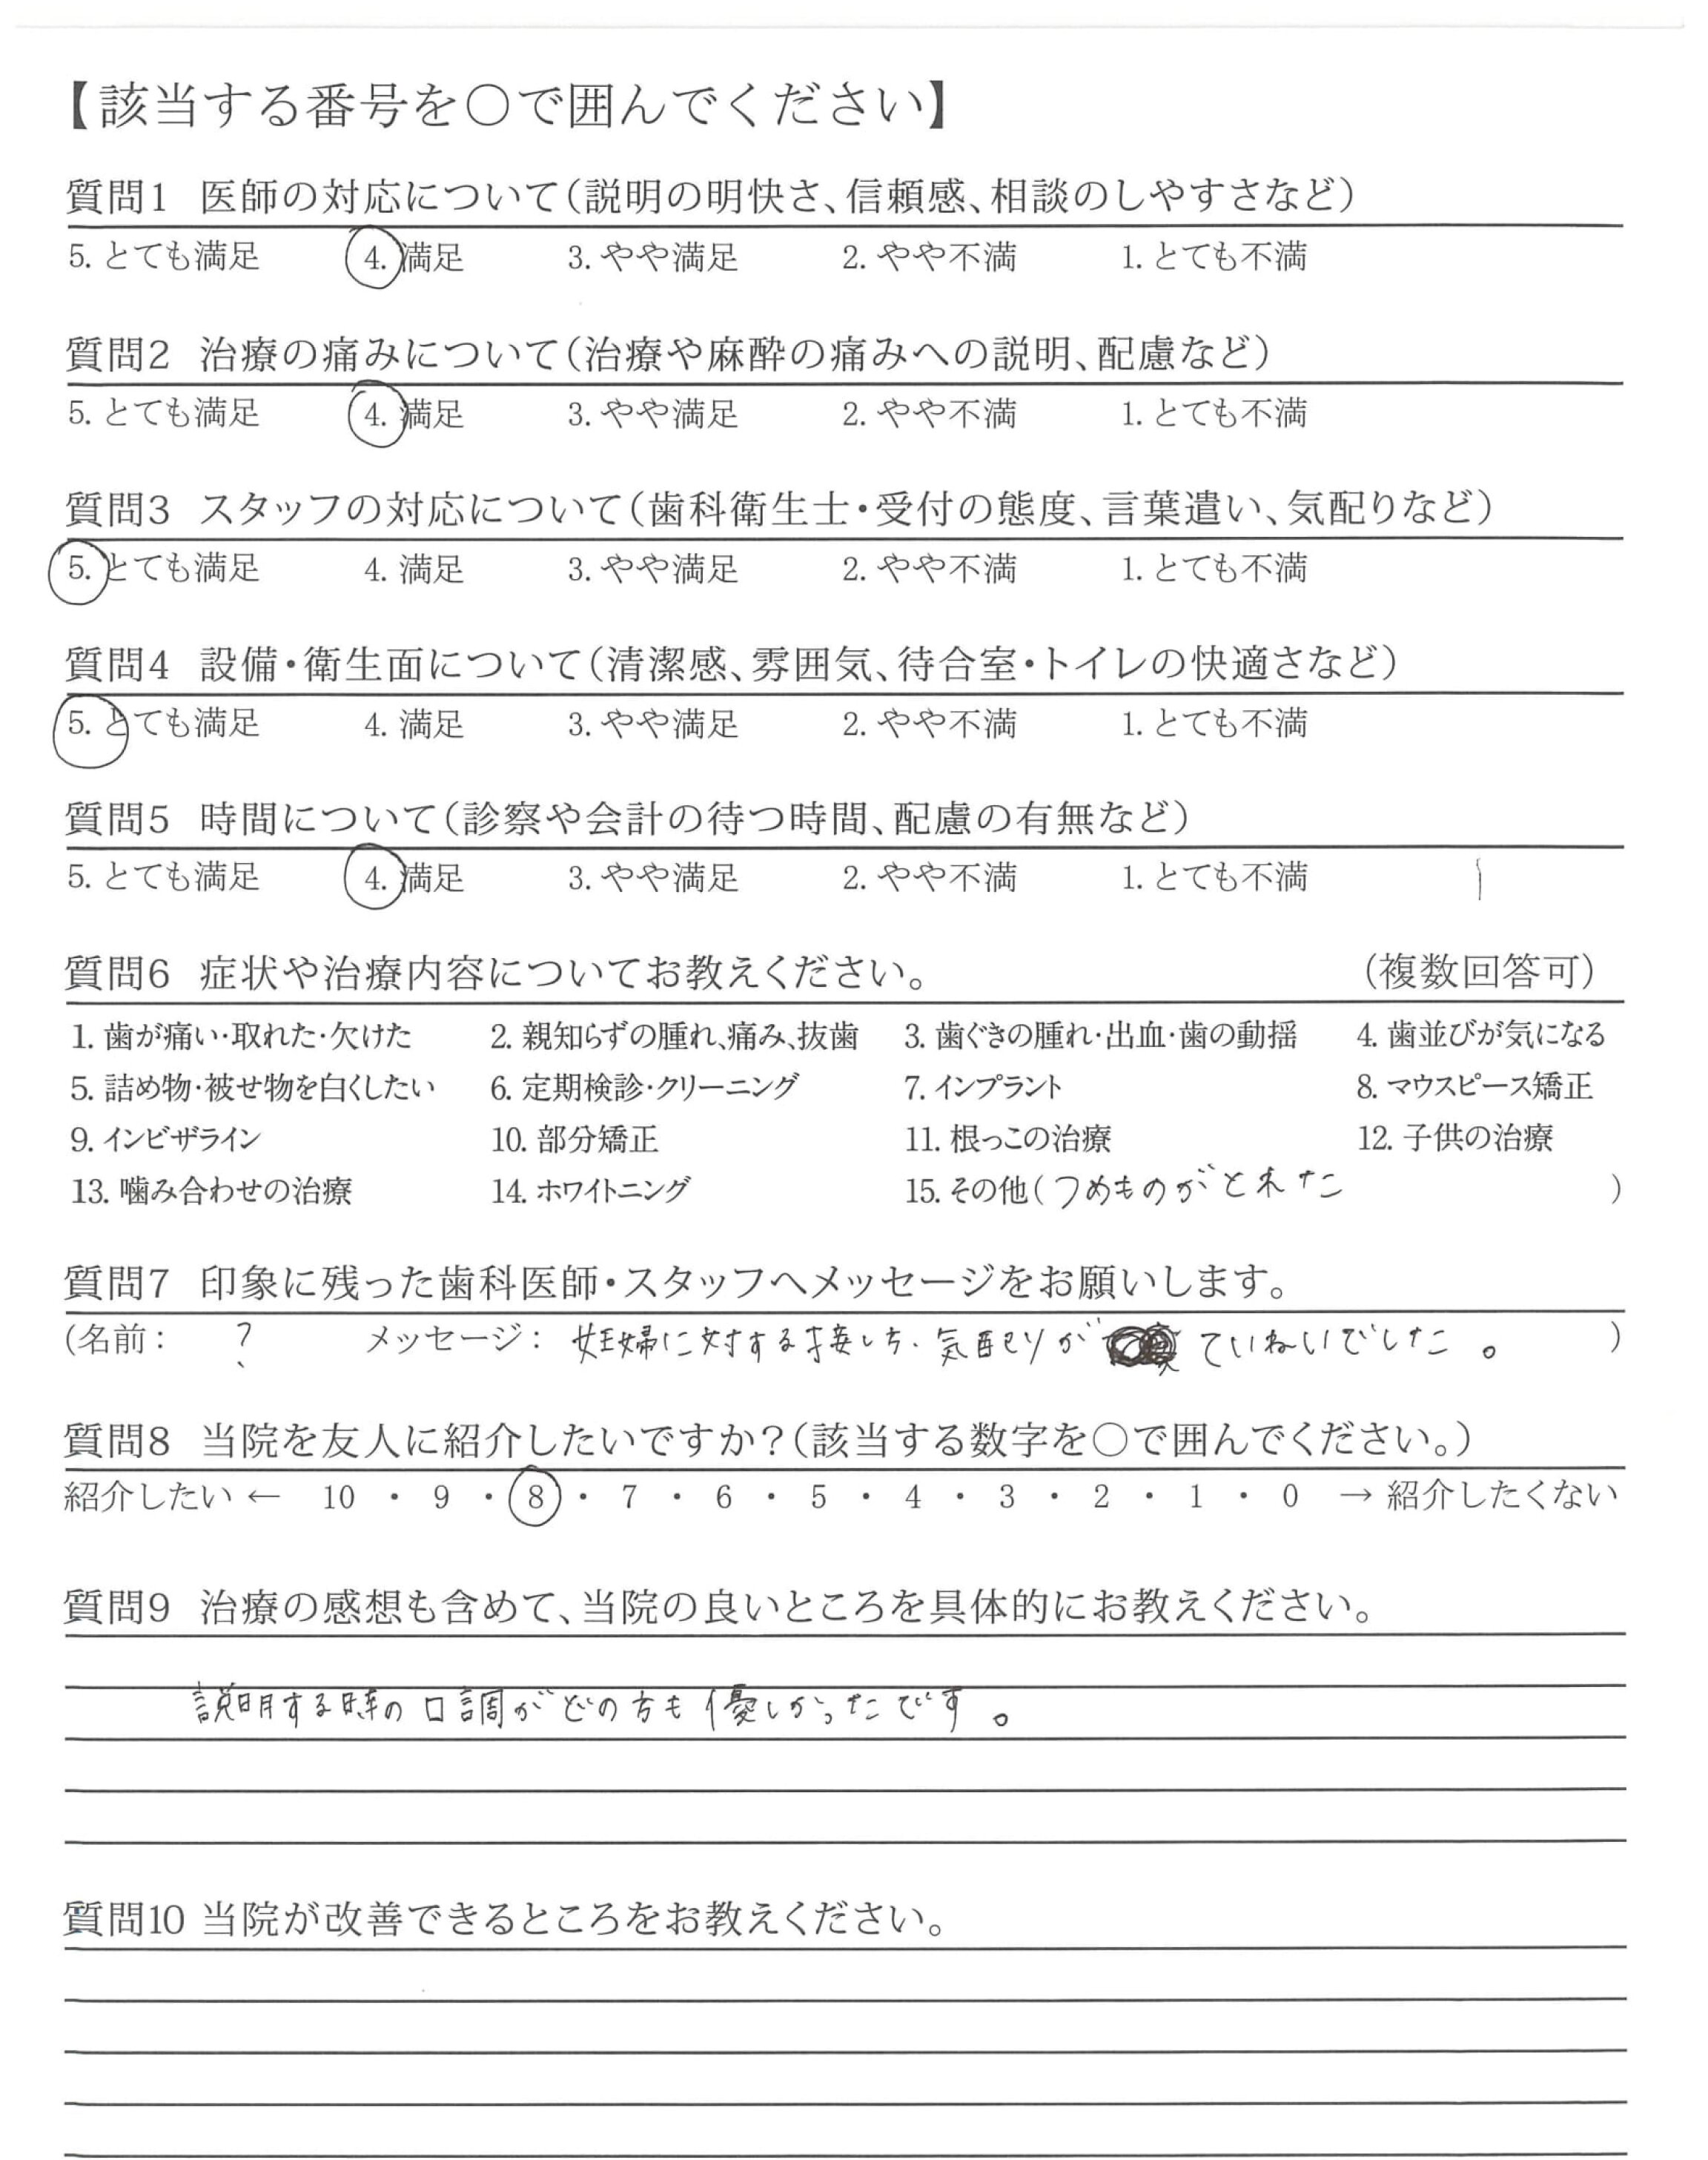 【該当する番号を○で囲んでください】
質問1 医師の対応について(説明の明快さ、信頼感、相談のしやすさなど)
5. とても満足 4. 満足 3. やや満足 2. やや不満 1. とても不満
質問2 治療の痛みについて(治療や麻酔の痛みへの説明、配慮など)
5. とても満足 4. 満足 3. やや満足 2. やや不満 1. とても不満
質問3 スタッフの対応について(歯科衛生士・受付の態度、言葉遣い、気配りなど)
5. とても満足 4. 満足 3. やや満足 2. やや不満 1. とても不満
質問4 設備・衛生面について(清潔感、雰囲気、待合室・トイレの快適さなど)
5. とても満足 4. 満足 3. やや満足 2. やや不満 1. とても不満
質問5 時間について(診察や会計の待つ時間、配慮の有無など)
5. とても満足 4. 満足 3. やや満足 2. やや不満 1. とても不満
質問6 症状や治療内容についてお教えください。 (複数回答可)
1. 歯が痛い・取れた・欠けた 2. 親知らずの腫れ、痛み、抜歯 3. 歯ぐきの腫れ・出血・歯の動揺 4. 歯並びが気になる
5. 詰め物・被せ物を白くしたい 6. 定期検診・クリーニング 7. インプラント 8. マウスピース矯正
9. インビザライン 10. 部分矯正 11. 根っこの治療 12. 子供の治療
13. 噛み合わせの治療 14. ホワイトニング 15. その他(つめものがとれた )
質問7 印象に残った歯科医師・スタッフへメッセージをお願いします。
(名前: ? メッセージ: 妊婦に対する接し方、気配りが ていねいでした。 )
質問8 当院を友人に紹介したいですか?(該当する数字を○で囲んでください。)
紹介したい ← 10 ・ 9 ・ 8 ・ 7 ・ 6 ・ 5 ・ 4 ・ 3 ・ 2 ・ 1 ・ 0 → 紹介したくない
質問9 治療の感想も含めて、当院の良いところを具体的にお教えください。
説明する時の口調がどの方も優しかったです。
質問10 当院が改善できるところをお教えください。